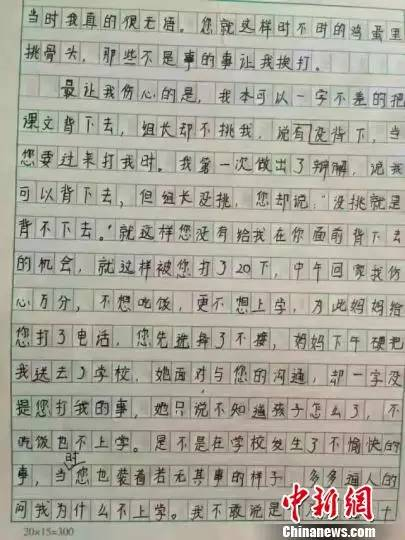 当时我真的很无语。您就这样时不时的鸡蛋里
挑骨头，那些不是事的事让我挨打。
最让我伤心的是，我本可以一字不差的把
课文背下去，组长却不挑我，说有没背下，当
您要过来打我时。我第一次做出了辩解，说我
可以背下去，但组长没挑，您却说："没挑就是
背不下去。"就这样您没有给我在你面前背下去
的机会，就这样被您打了20下，中午回家我伤
心万分，不想吃饭，更不想上学，为此妈妈给
您打了电话，您先选择了不接，妈妈下午硬把
我送去了学校，她面对与您的沟通，却一字没
提您打我的事，她只说不知道孩子怎么了，不
吃饭也不上学。是不是在学校发生了不愉快的
事，当时您也装着若无其事的样子，多多逼人的
问我为什么不上学。我不敢说是
中新网
Chinanews.com
20×15=300